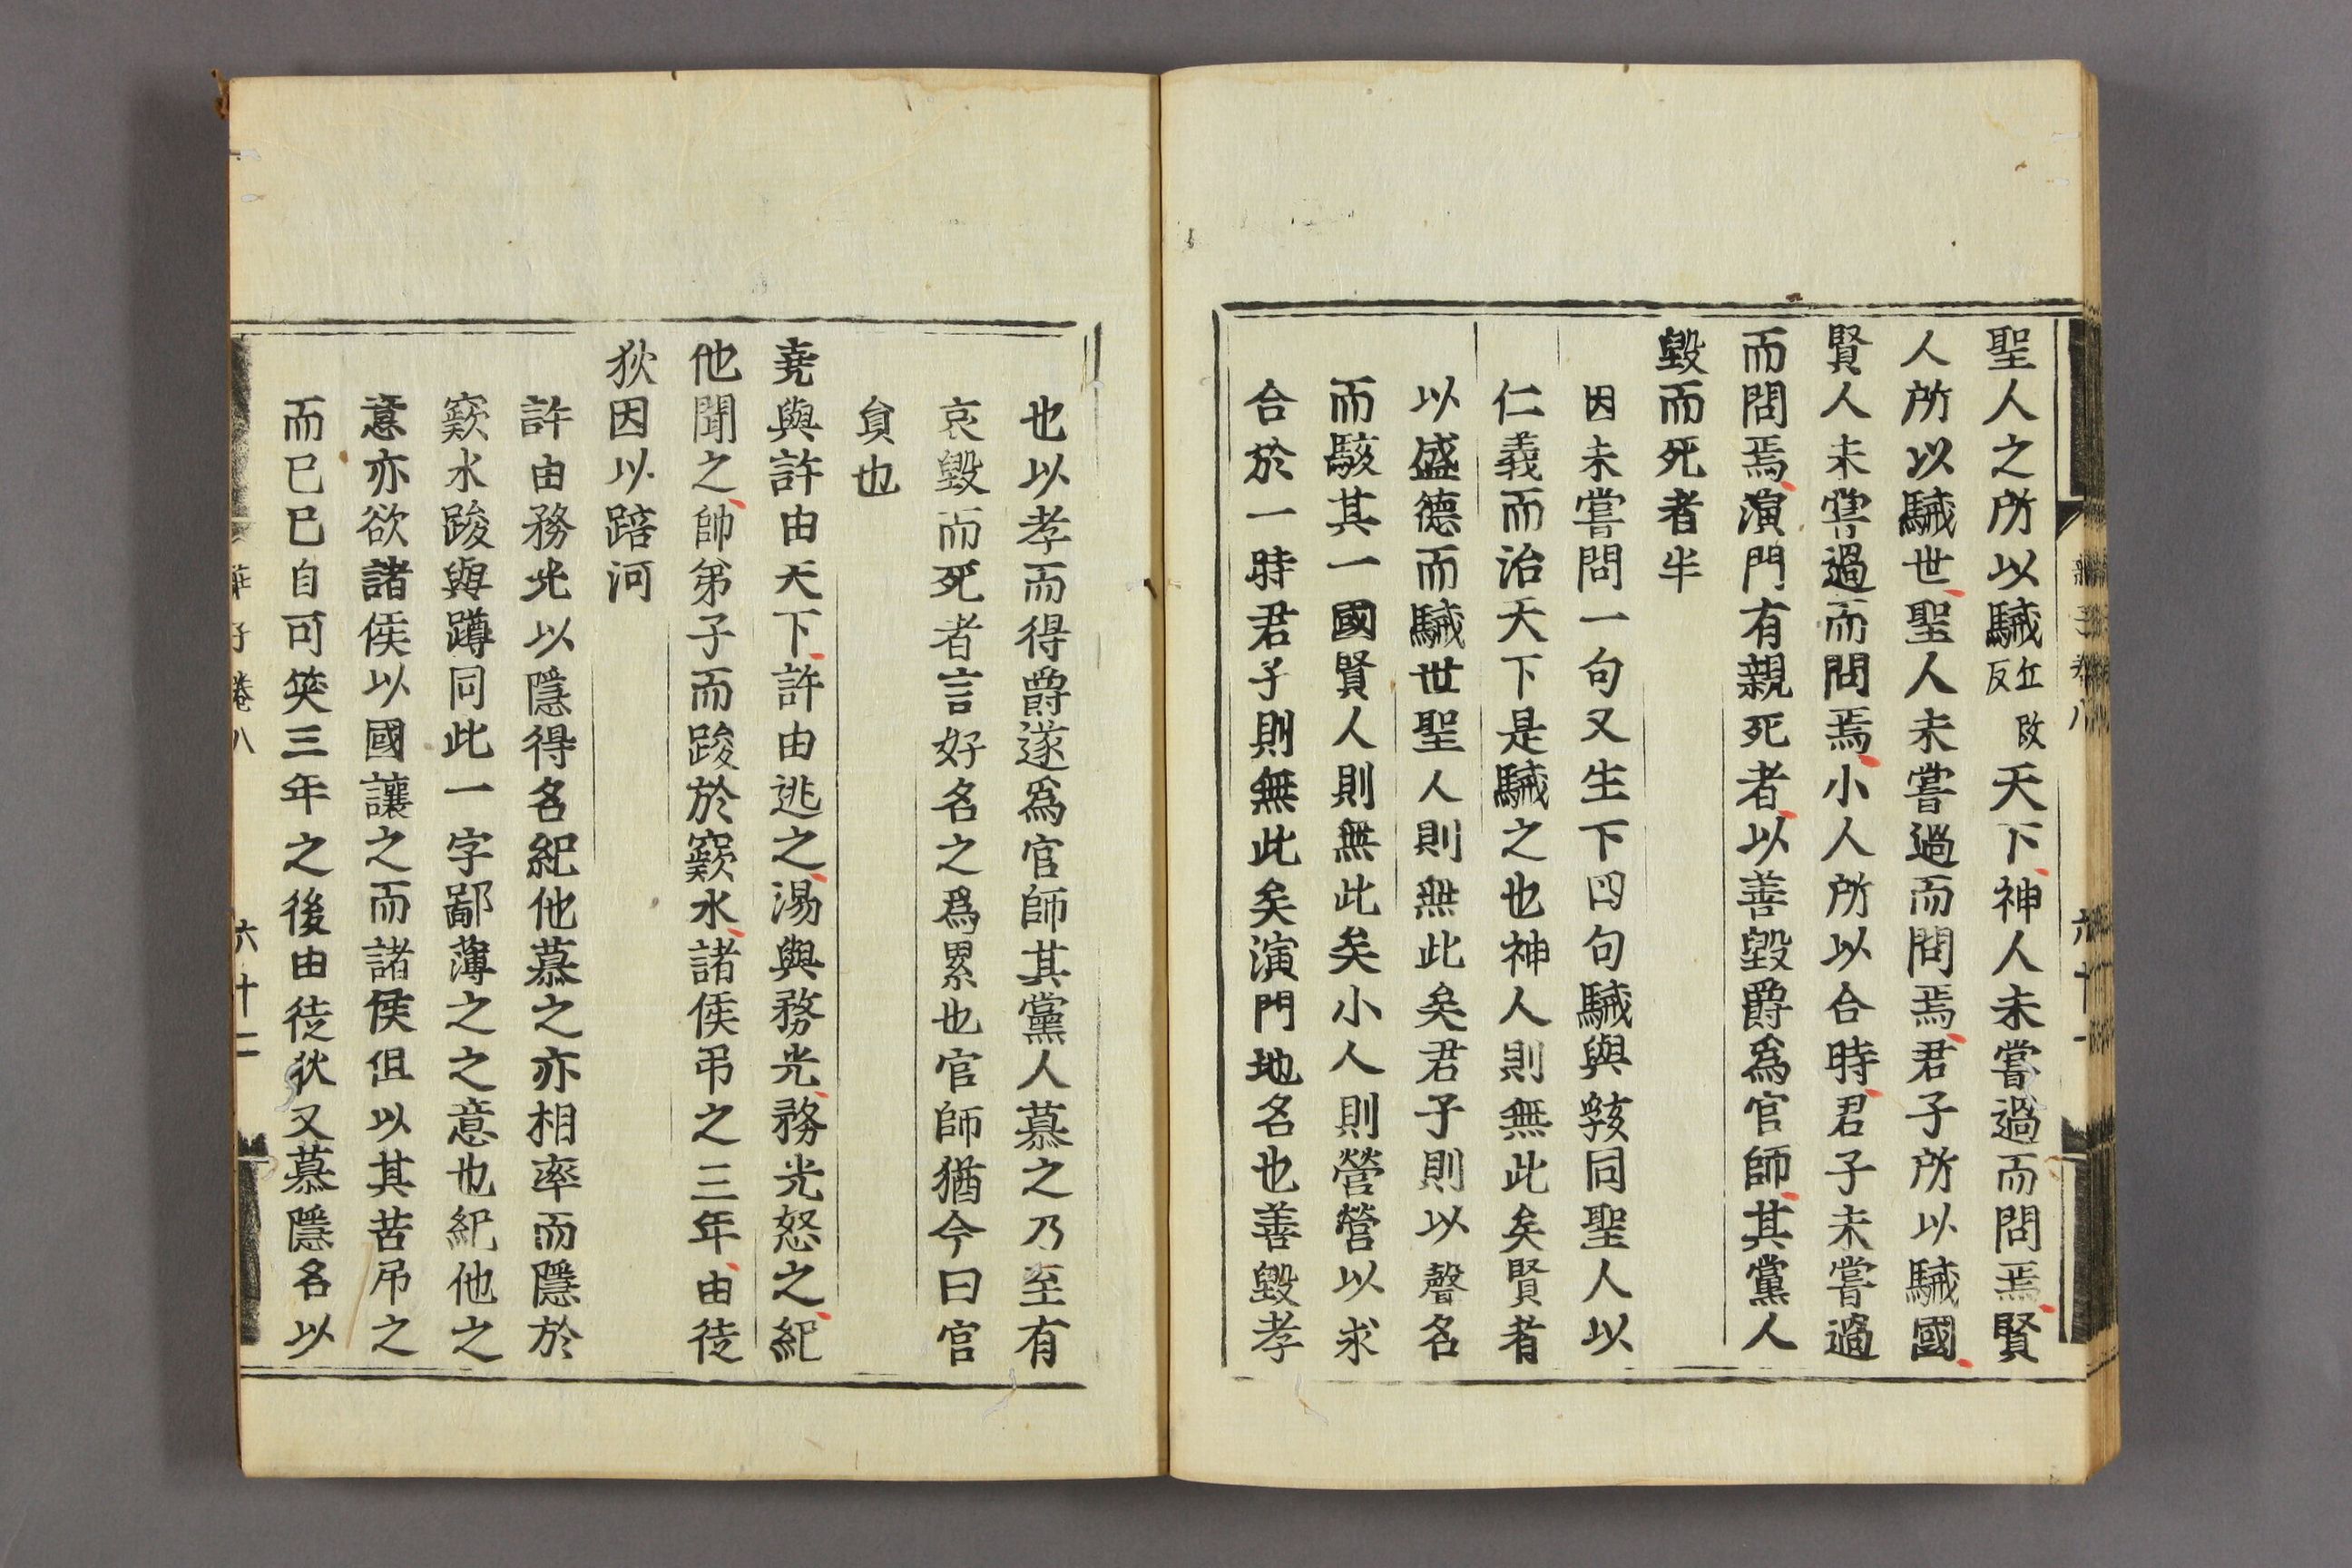 聖人之所以駴丘改反天下神人未嘗過而問焉賢
人所以駴世聖人未嘗過而問焉君子所以駴國
賢人未嘗過而問焉小人所以合時君子未嘗過
而問焉演門有親死者以善毀爵爲官師其黨人
毀而死者半
因未嘗問一句又生下四句駴與駭同聖人以
仁義而治天下是駴之也神人則無此矣賢者
以盛德而駴世聖人則無此矣君子則以聲名
而駭其一國賢人則無此矣小人則營營以求
合於一時君子則無此矣演門地名也善毀孝
也以孝而得爵遂爲官師其黨人慕之乃至有
哀毀而死者言好名之爲累也官師猶今曰官
員也
堯與許由天下許由逃之湯與務光務光怒之紀
他聞之帥弟子而踆於窾水諸侯弔之三年由徒
狄因以踣河
許由務光以隱得名紀他慕之亦相率而隱於
窾水踆與蹲同此一字鄙薄之之意也紀他之
意亦欲諸侯以國讓之而諸侯但以其苦吊之
而已已自可笑三年之後由徒狄又慕隱名以
莊子卷八 六十二